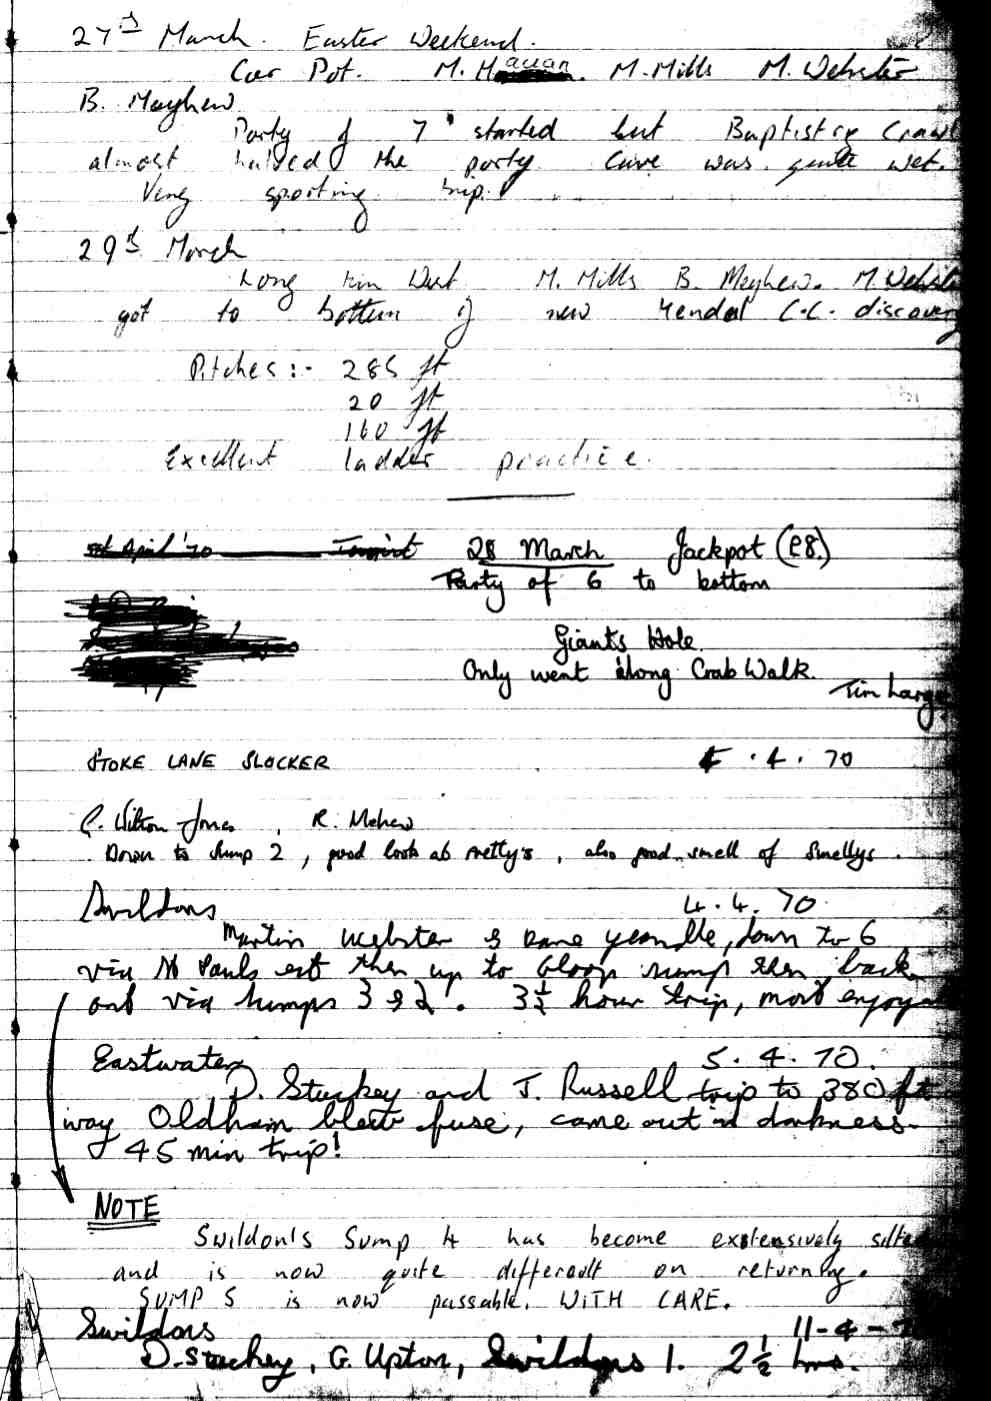 27th March. Easter Weekend.
Car Pot. M. Hauan. M. Mills M. Webster
B. Mayhew.
Party of 7 started but Baptistry Crawl
almost halved the party Cave was quite wet.
Very sporting trip.
29th March
Long Kin West M. Mills B. Meyhew. M. Webster
got to bottom of new Kendal C.C. discovery
Pitches:- 285 ft
20 ft
160 ft
Excellent ladder practice.
28 March Jackpot (P8.)
Party of 6 to bottom
Giants Hole.
Only went along Crab Walk.
Tim Large
STOKE LANE SLOCKER 4.70
Wilton-Jones, R. Mehew
Down to Sump 2, good look at Pretty's, also good smell of Smellys.
Swildons 4.4.70
Martin Webster & Dave Yeandle, down to 6
via St Pauls ect then up to Gloop sump then back
out via Sumps 3 & 2. 3½ hour trip, most
Eastwater 5.4.70.
D. Stuckey and J. Russell trip to 380 ft
way Oldham blew fuse, came out in darkness.
45 min trip!
NOTE
Swildon's Sump 4 has become extensively
and is now quite differcult on returning.
SUMP 5 is now passable. WITH CARE.
Swildons 11-4-
D. Stuckey, G. Upton, Swildons 1. 2½ hrs.